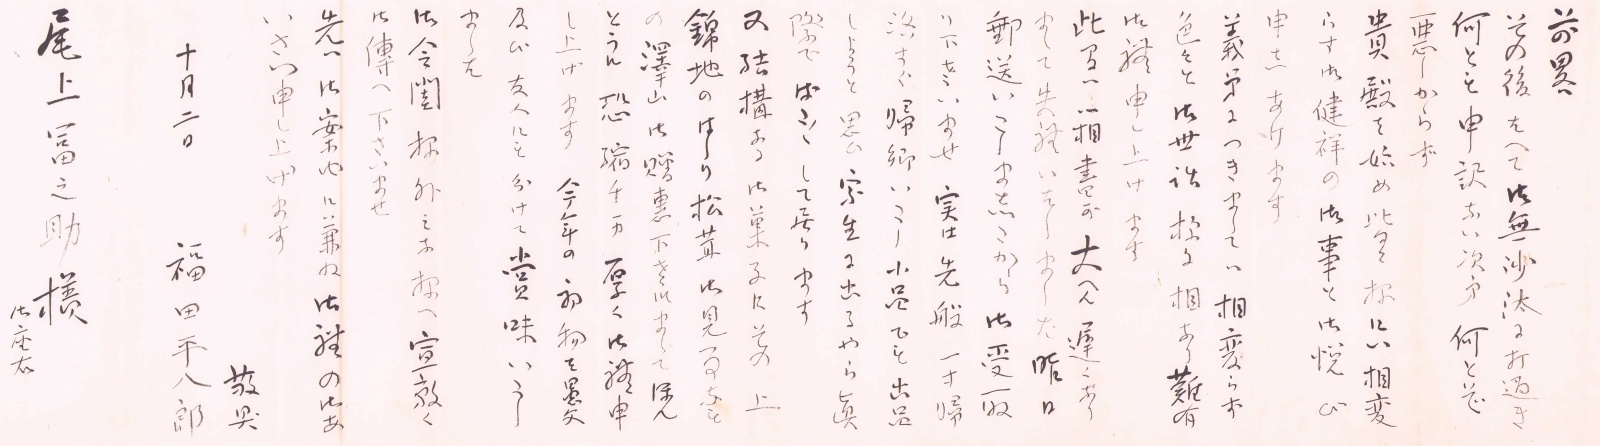 前略
その後 たへて御無沙汰に打過ぎ
何とも申訳ない次第 何と
悪しからず
貴殿を始め皆々様には相変
らず御健祥の御事と御悦び
申しあげます
義弟につきましては相変らず
色々と御世話様に相なり難有
御禮申し上げます
此間は御相書が大へん遅くなり
まして失禮いたしました 昨日
郵送いたしましたから御受取
り下さいませ 実は先般一寸帰
洛すぐ帰郷いたし小品でも出品
しようと思ひ 写生に出るやら
際で して居ります
又結構なる御菓子にその上
錦地のはしり松茸 御見事なを
の澤山御贈恵下さいまして ほん
とうに恐縮千万 厚く御禮申
し上げます 今年の初物を愚父
及び友人にも分けて賞味いたし
ました
御令閨様外皆々様へ宜敷く
御傳へ下さいませ
先は御案内に兼ね御禮のごあ
いさつ申し上げます
敬具
十月二日
福田平八郎
尾上冨之助様
御座右